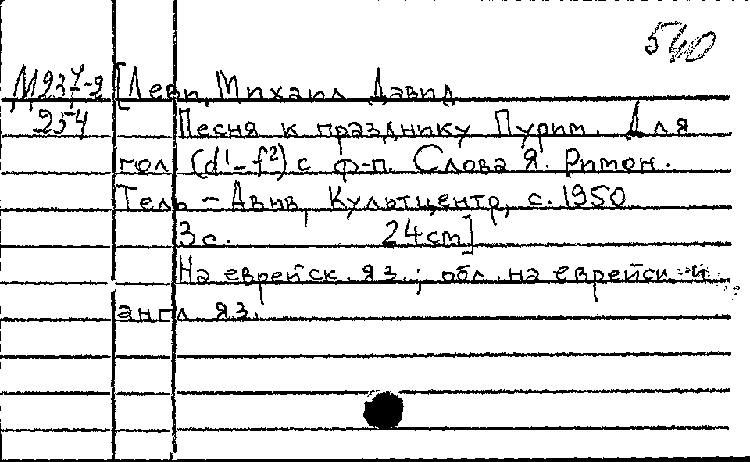 540
М937-2 [Леви, Михаил Давид
254 Песня к празднику Пурим. Для
гол (d¹-f²) с ф-п. Слова Я. Римон.
Тель-Авив, Культцентр, с. 1950
3с. 24cm]
На еврейск. яз.; обл. на еврейск и
англ яз.